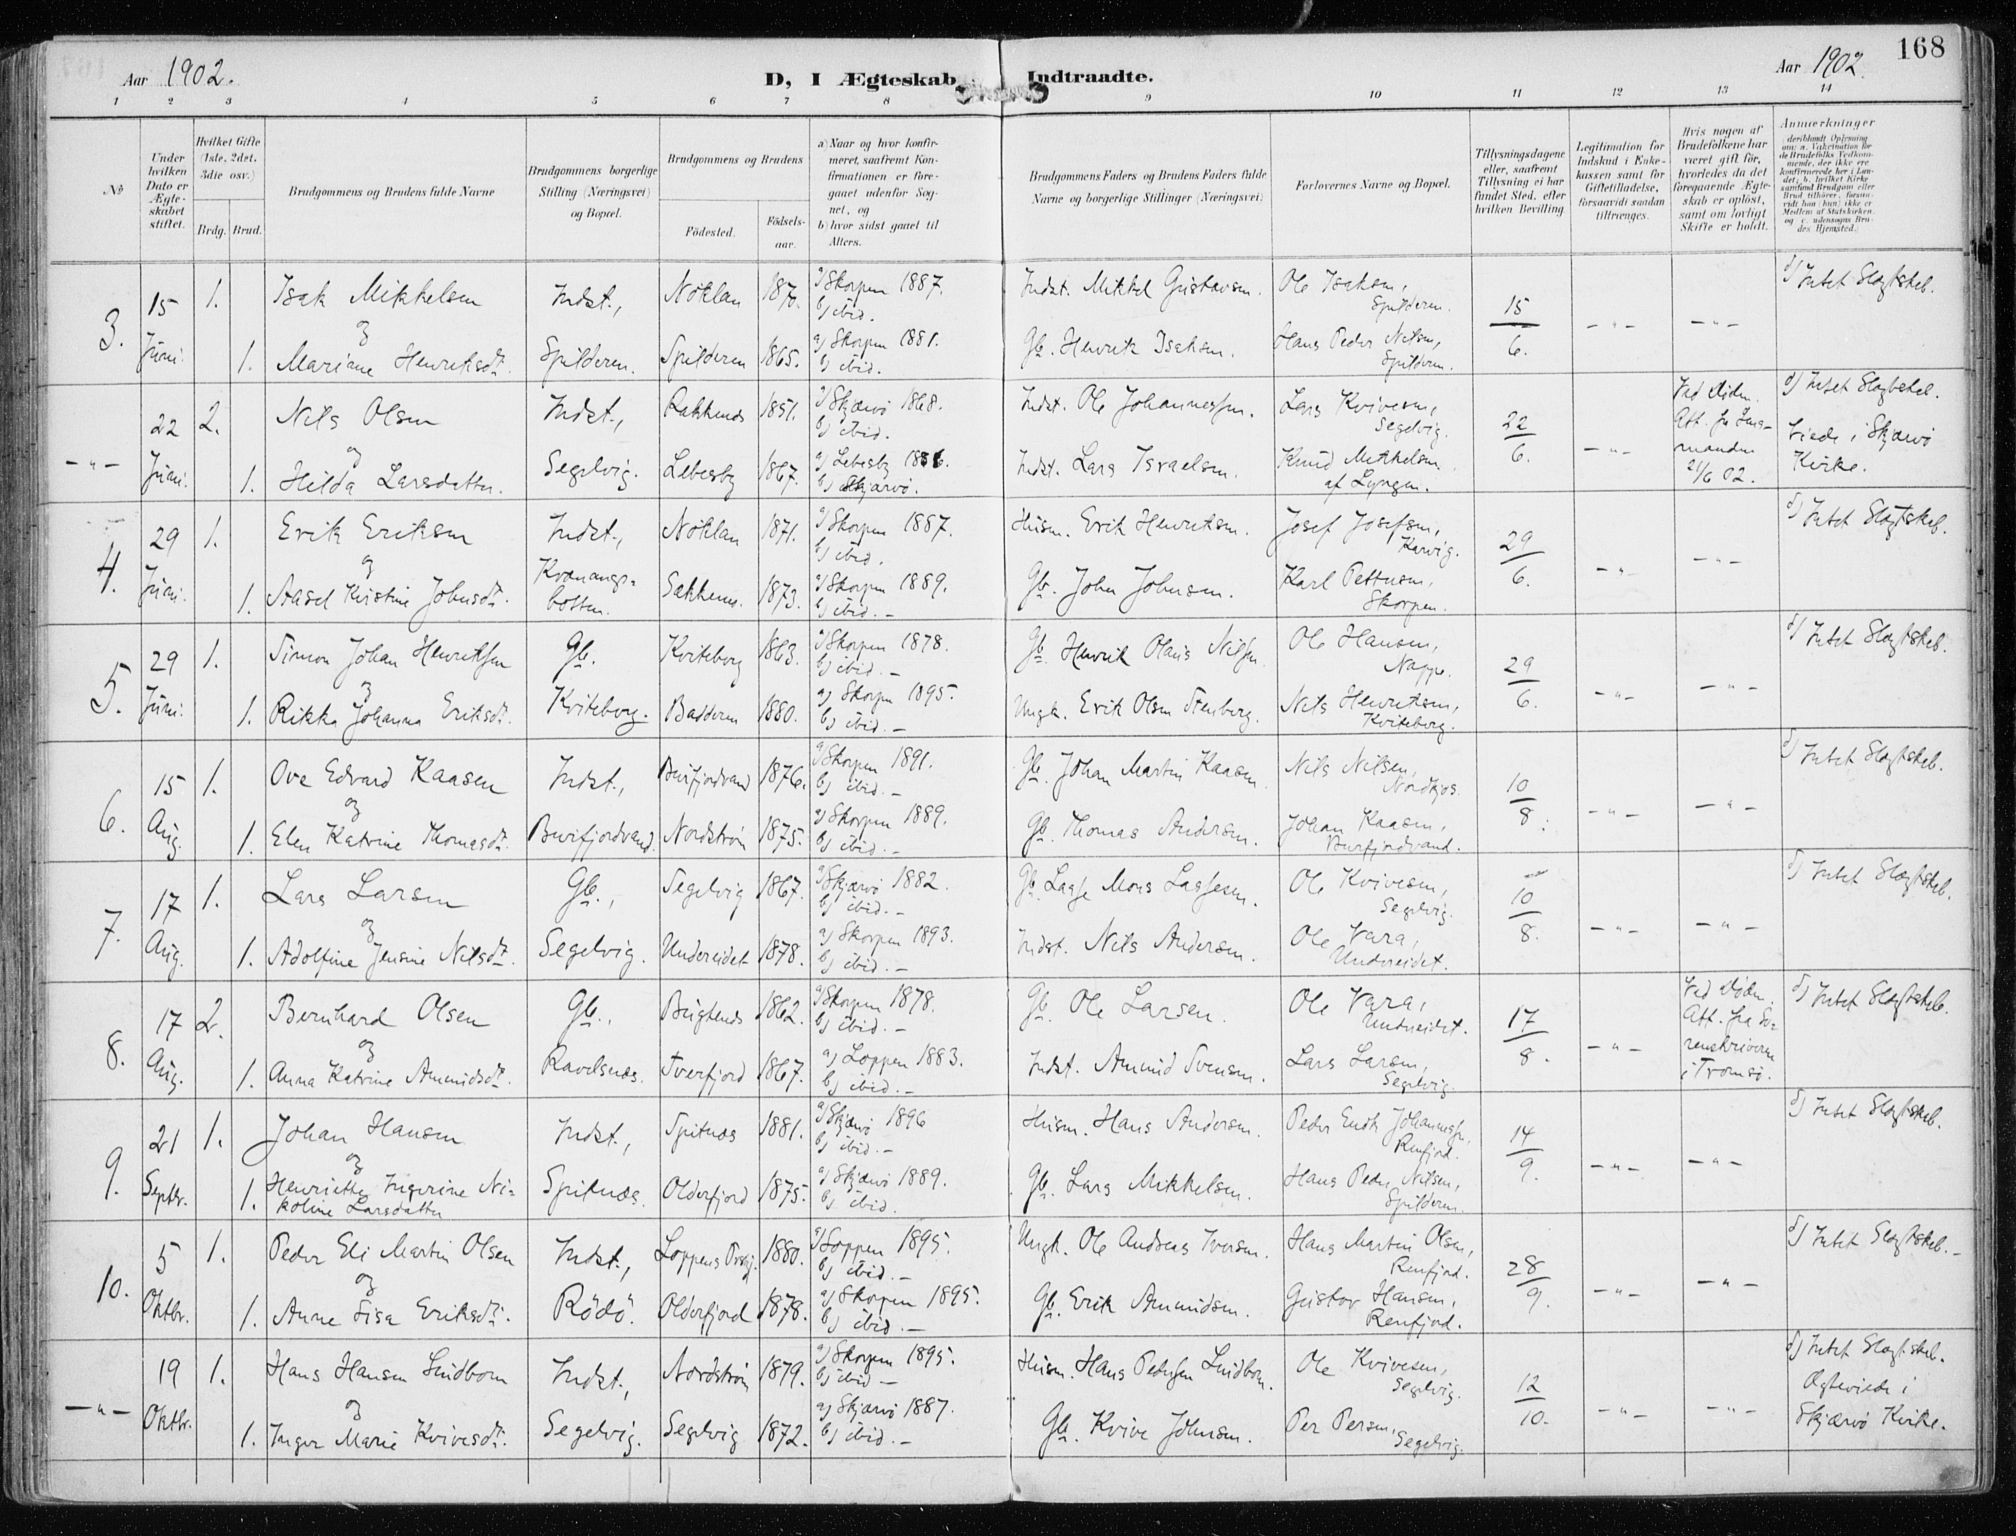 168
Aar 1902.
D, I Ægteskab Indtraadte.
Aar 1902.
1 2 3 4 5 6 7 8 9 10 11 12 13 14
No
Under hvilken Dato er Ægteskabet stiftet.
Hvilket Gifte (1ste, 2det, 3die osv.)
Brdg. Brud.
Brudgommens og Brudens fulde Navne
Brudgommens borgerlige Stilling (Næringsvei) og Bopæl.
Brudgommens og Brudens
Födested.
Födselsaar.
a) Naar og hvor konfirmeret, saafremt Konfirmationen er foregaaet udenfor Sognet, og
b) hvor sidst gaaet til Alters.
Brudgommens Faders og Brudens Faders fulde Navne og borgerlige Stillinger (Næringsvei)
Forlovernes Navne og Bopæl.
Tillysningsdagene eller, saafremt Tillysning ei har fundet Sted, efter hvilken Bevilling
Legitimation for Indskud i Enkekassen samt for Giftetilladelse, forsaavidt saadan tiltrænges.
Hvis nogen af Brudefolkene har været gift før, hvorledes da det foregaaende Ægteskab er opløst, samt om lovligt Skifte er holdt.
Anmærkninger
3. 15 Juni. 1. Isak Mikkelsen Indst., Nöklan 1870. a) Skorpen 1887. b) ibid. Indst. Mikkel Gustavsen. Ole Isaksen, Spilderen. 15/6. - " - - " - d) Intet Slægtskab.
og
1. Mariane Henriksdt. Spilderen. Spilderen 1865. a) Skorpen 1881. b) ibid. Gb. Henrik Isaksen. Hans Peder Nilsen, Spilderen.
- " - 22 Juni. 2. Nils Olsen Indst., 1851. a) Skjærvö 1868. b) ibid. Indst. Ole Johannessen. Lars Kvivesen, Segelvig. 22/6. - " - Ved Döden. Att. fra Lensmanden 21/6 02. d) Intet Slægtskab. Viede i Skjærvö Kirke.
og
1. Hilda Larsdatter. Segelvig. Lebesby 1867. a) Lebesby b) Skjærvö. Indst. Lars Israelsen. Knud Mikkelsen af Lyngen.
4. 29 Juni. 1. Erik Eriksen Indst., Nöklan 1871. a) Skorpen 1887. b) ibid. Husm. Erik Henriksen. Josef Josefsen, 29/6. - " - - " - d) Intet Slægtskab.
og
1. Aasel Kristine Johnsdt. Kvænangsbotten. 1873. a) Skorpen 1889. b) ibid. - Gb. John Johnsen. Karl Pettersen, Skorpen.
5. 29 Juni. 1. Simon Johan Henriksen Gb. Kviteberg 1863. a) Skorpen 1878. b) ibid. - Gb. Henrik Olaus Nilsen. Ole Hansen, Nappe. 29/6. - " - - " - d) Intet Slægtskab.
og
1. Rikka Johanna Eriksdt. Kviteberg. Badderen 1880. a) Skorpen 1895. b) ibid. - Ungk. Erik Olsen Stenberg. Nils Henriksen, Kviteberg.
6. 15 Aug. 1. Ove Edvard Kaasen Indst., Burfjordvand 1876. a) Skorpen 1891. b) ibid. - Gb. Johan Martin Kaasen. Nils Nilsen, Nordkjos. 10/8. - " - - " - d) Intet Slægtskab.
og
1. Elen Katrine Thomasdt. Burfjordvand. Nordström 1875. a) Skorpen 1889. b) ibid. - Gb. Thomas Andersen. Johan Kaasen, Burfjordvand.
7. 17 Aug. 1. Lars Larsen Gb., Segelvig 1867. a) Skjærvö 1882. b) ibid. - Gb. Lasse Mons Lassesen. Ole Kvivesen, Segelvig. 10/8. - " - - " - d) Intet Slægtskab.
og
1. Adolfine Jensine Nilsdt. Segelvig. Undereidet 1878. a) Skorpen 1893. b) ibid. - Indst. Nils Andersen. Ole Vara, Undereidet.
8. 17 Aug. 2. Bernhard Olsen Gb., 1862. a) Skorpen 1878. b) ibid. - Gb. Ole Larsen. Ole Vara, Undreidet. 17/8. - " - Ved Döden. Att. fra Sorenskriveren i Tromsö. d) Intet Slægtskab.
og
1. Anna Katrine Amundsdt. Ravelsnæs. Tverfjord 1867. a) Loppen 1883. b) ibid. - Indst. Amund Svensen. Lars Larsen, Segelvig.
9. 21 Septbr. 1. Johan Hansen Indst., Spitnæs 1881. a) Skjærvö 1896 b) ibid. - Husm. Hans Andersen. Peder Johannessen, Renfjord. 14/9. - " - - " - d) Intet Slægtskab.
og
1. Henriette Ingerine Nikoline Larsdatter Spitnæs. Olderfjord 1875. a) Skjærvö 1889. b) ibid. Gb. Lars Mikkelsen. Hans Peder Nilsen, Spilderen.
10. 5 Oktbr. 1. Peder Eli Martin Olsen Indst., Loppens Prgj. 1880. a) Loppen 1895. b) ibid. - Ungk. Ole Andreas Iversen. Hans Martin Olsen, Renfjord. 28/9. - " - - " - d) Intet Slægtskab. -
og
1. Anne Lisa Eriksdt. Rödö. Olderfjord 1878. a) Skorpen 1895. b) ibid. - Gb. Erik Amundsen. Gustav Hansen, Renfjord.
- " - 19 Oktbr. 1. Hans Hansen Lindbom Indst., Nordström 1879. a) Skorpen 1895. b) ibid - Husm. Hans Pedersen Lindbom. Ole Kvivesen, Segelvig. 12/10. - " - - " - d) Intet Slægtskab. Ægteviede i Skjærvö Kirke.
og
1. Inger Marie Kvivesdt. Segelvig. Segelvig 1872. a) Skjærvö 1887. b) ibid. - Gb. Kvive Johnsen. Per Persen, Segelvig.